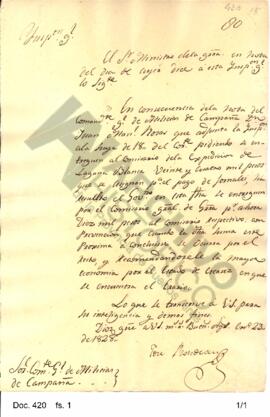 420 18
80
Insp.on g.l
El S.r Ministro de la g.rra en nota
del dia de ayer dice a esta Insp.on g.l
lo sig.te
En consecuencia de la nota del
Com.te g.l de Milicias de Campaña Dn
Juan Man.l Rosas que adjunta la Insp.on
a la suya de 18 del Cor.te pidiendo se en-
treguen al Comisario de la Expedicion de
Laguna Blanca Veinte y cuatro mil pesos
p.a el pago de jornales, ha
resuelto el Gov.no en esta fha se entreguen
por el Comisario gral de g.rra p.r ahora
Diez mil pesos al Comisario respectivo, con
prevencion que cuando la otra suma este
proxima a concluirse, ocurra por el
resto, y recomendandosele la mayor
economia por el estado de escasez en que
se encuentra el Erario.
Lo que se transcribe a V.S. para
su inteligencia y demas fines.
Dios gue a V.S. m.s a.s Buen.s Ay.s En.o 23
de 1828.
Jose Rondeau
Sor Com.te G.l de Milicias
de Campaña
Doc. 420 fs. 1
1/1